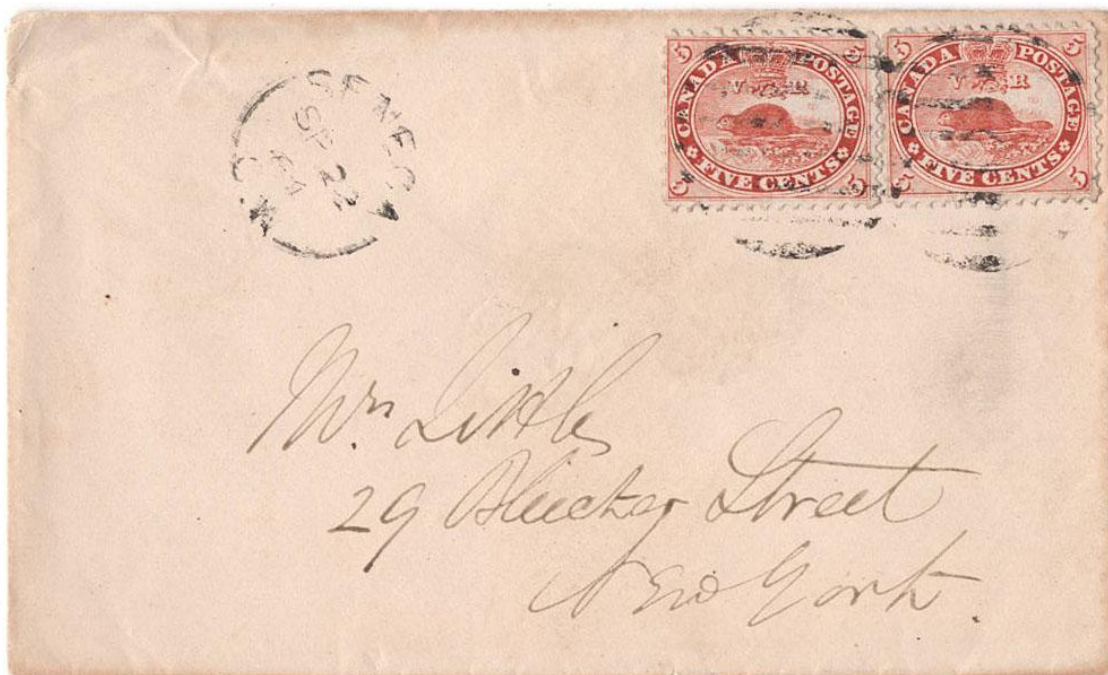 SENECA
SP 22
64
C.W
5 5
CANADA POSTAGE
V R
FIVE CENTS
5 5
5 5
CANADA POSTAGE
V R
FIVE CENTS
5 5
Wm Little
29 Bleecker Street
New York.